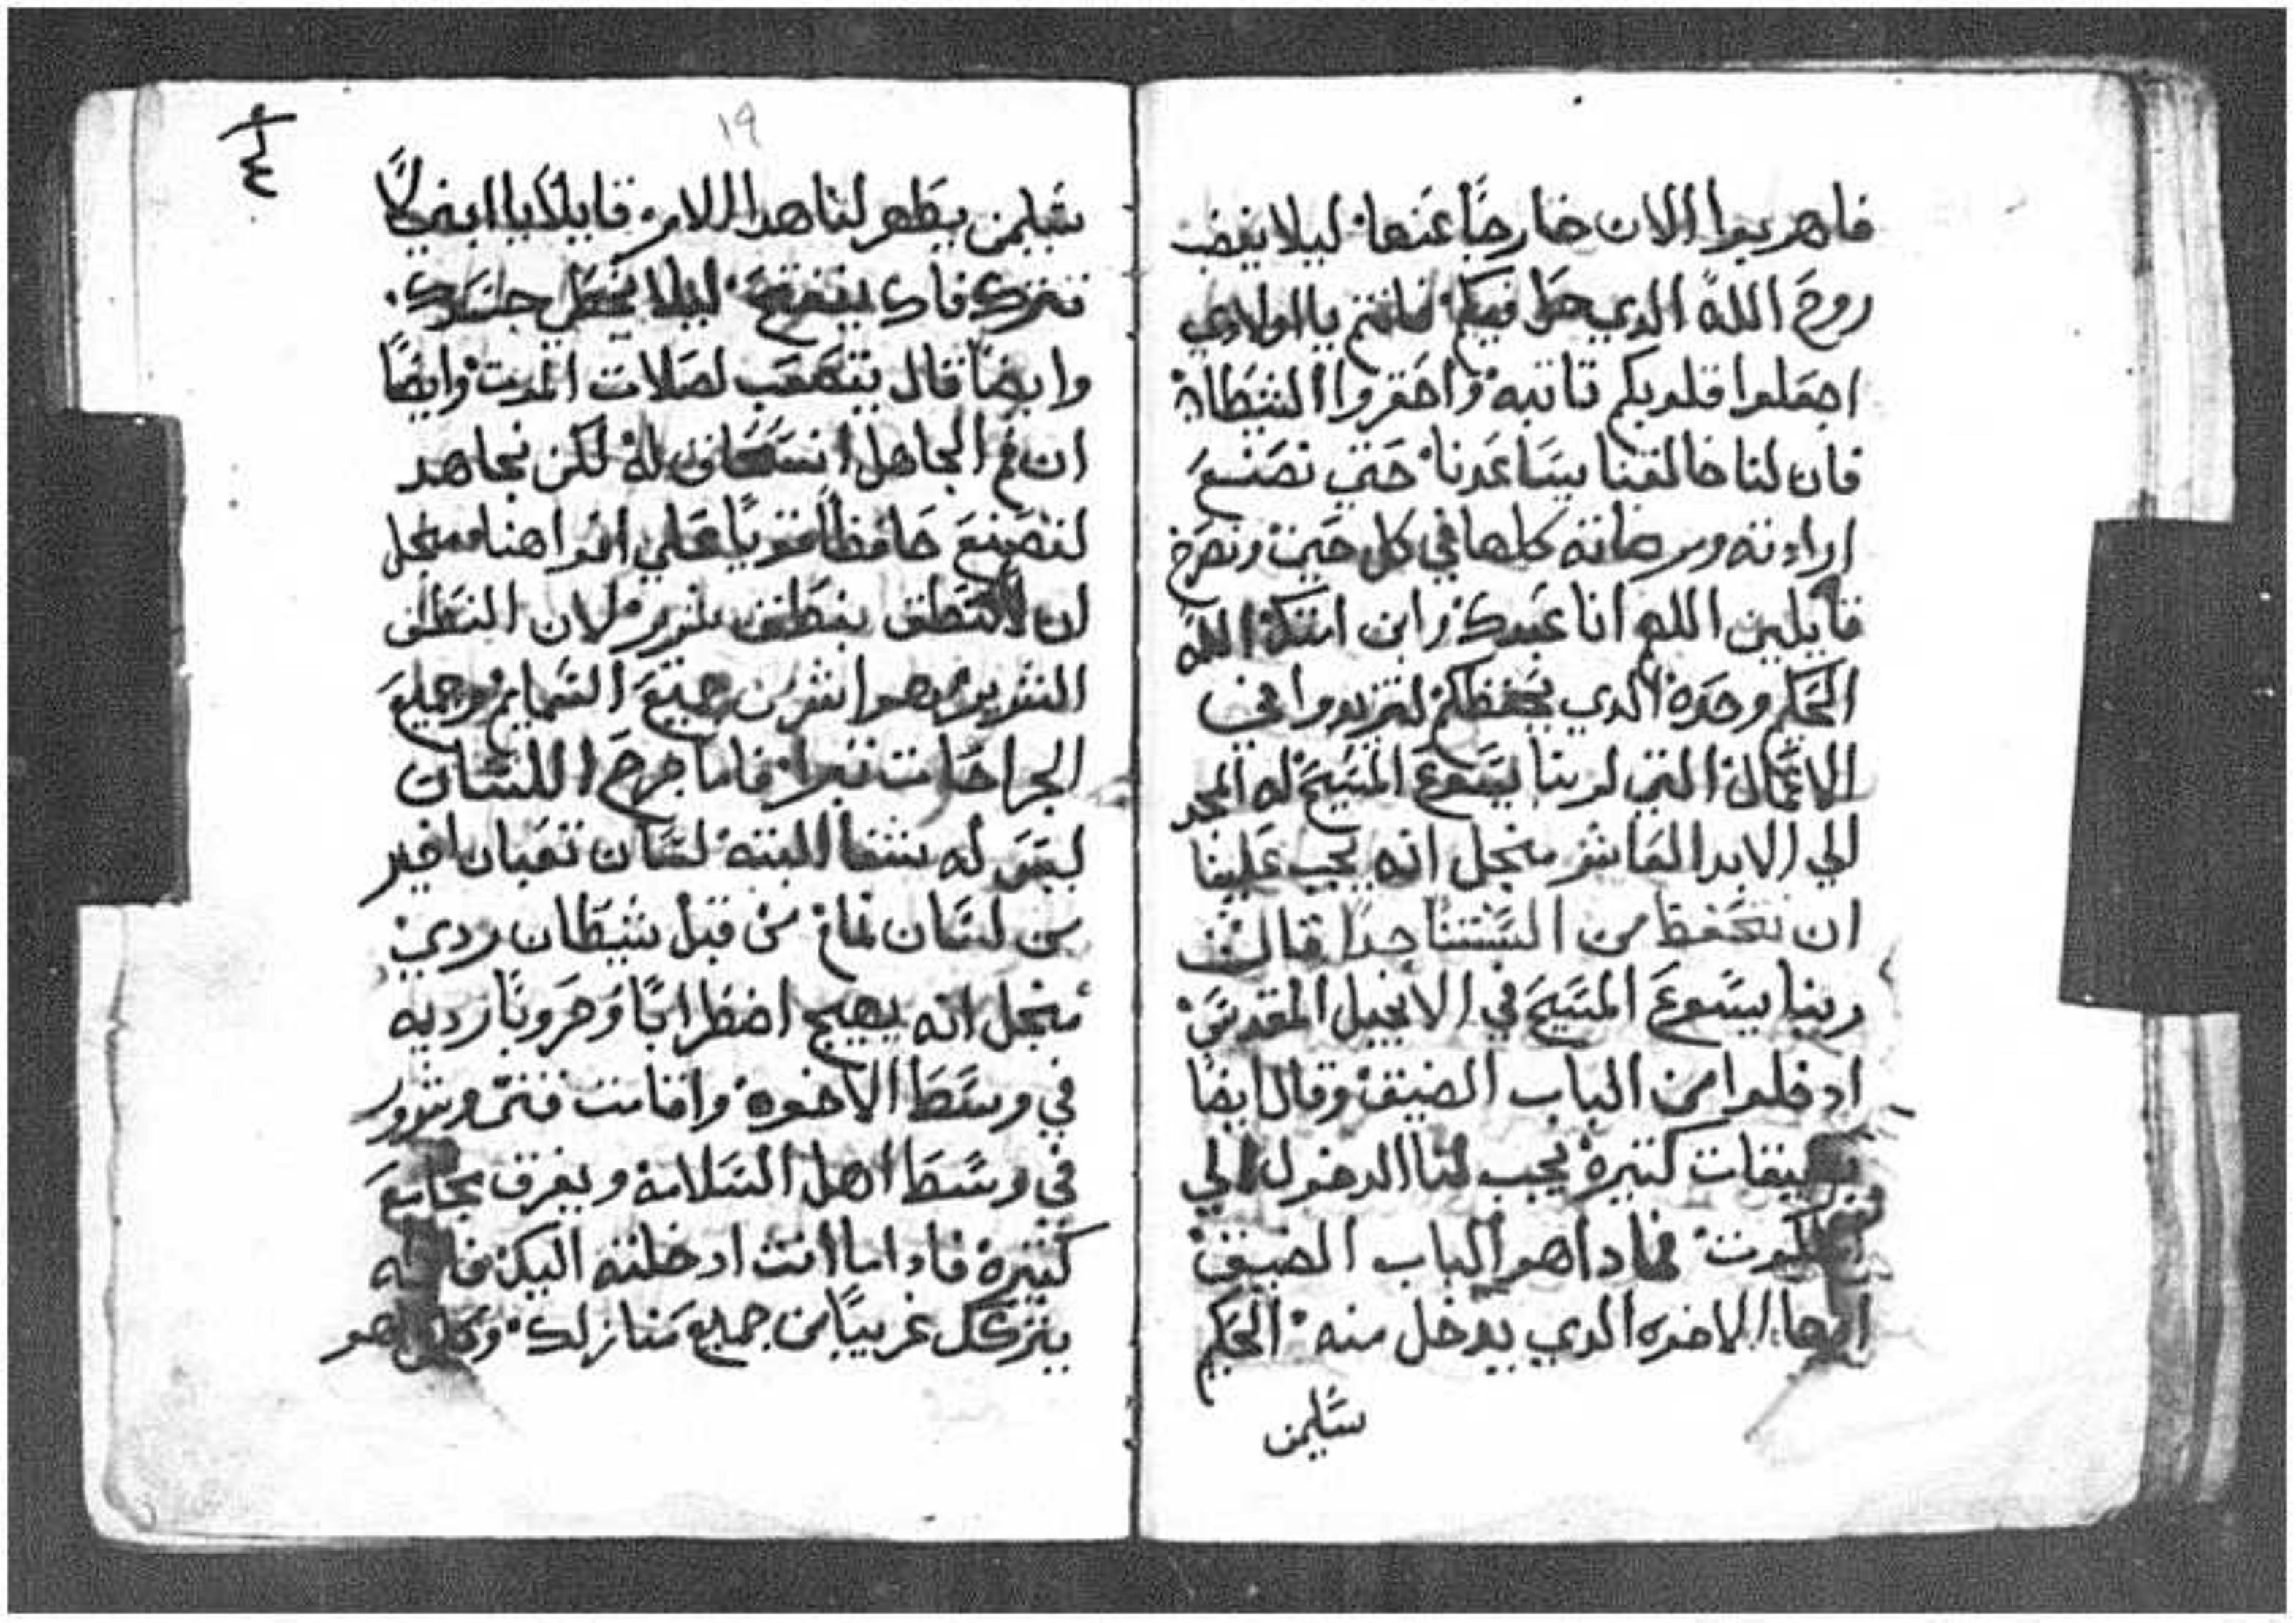 فاهربوا الان خارجًا عنها ليلا يغضب
روح الله الدي حل فيكم فانتم يا اولادي
اجعلوا قلوبكم تابته واحقروا الشيطان
فان لنا خالقنا يساعدنا حتي نصنع
ارادته ومرضاته كلها في كل حين ونصرخ
قايلين اللهم انا عبدك وابن امتك الله
الحكيم وحده الدي يحفظكم لتزيدوا في
الاعمال التي لربنا يسوع المسيح له المجد
الي الابد العاشر منجل انه يجب علينا
ان نتحفظ من جدا قال
ربنا يسوع المسيح في الانجيل المقدس
ادخلوا من الباب الضيق وقال ايضا
بضيقات كتيرة يجب لنا الدخول الي
الملكوت فمادا هو الباب الضيق
ايها الاخوه الدي يدخل منه الحكيم
سليمن
١٩
سليمن يظهر لنا هدا الامر قايلا يا ابني لا
تترك فاك ينفتح ليلا يخطي جسدك
وايضا قال يتصعب لصلات الموت وايضا
ان فم الجاهل له لكن نجاهد
لنصنع حافظا قويا علي افواهنا منجل
ان لا ننطق بنطق شرير لان النطق
الشرير هو اشر من جميع السمايم وجميع
الجراحات تبرا فاما جرح اللسان
ليس له شفا البته لسان تعبان اخير
من لسان نمام من قبل شيطان ردي
منجل انه يهيج اضطرابًا وحروبًا رديه
في وسط الاخوه وافامت فتن وشرور
في وسط اهل السلامه ويفرق مجامع
كتيرة فادا ما انت ادخلته اليك فانه
يتركك غريبًا من جميع منازلك هو